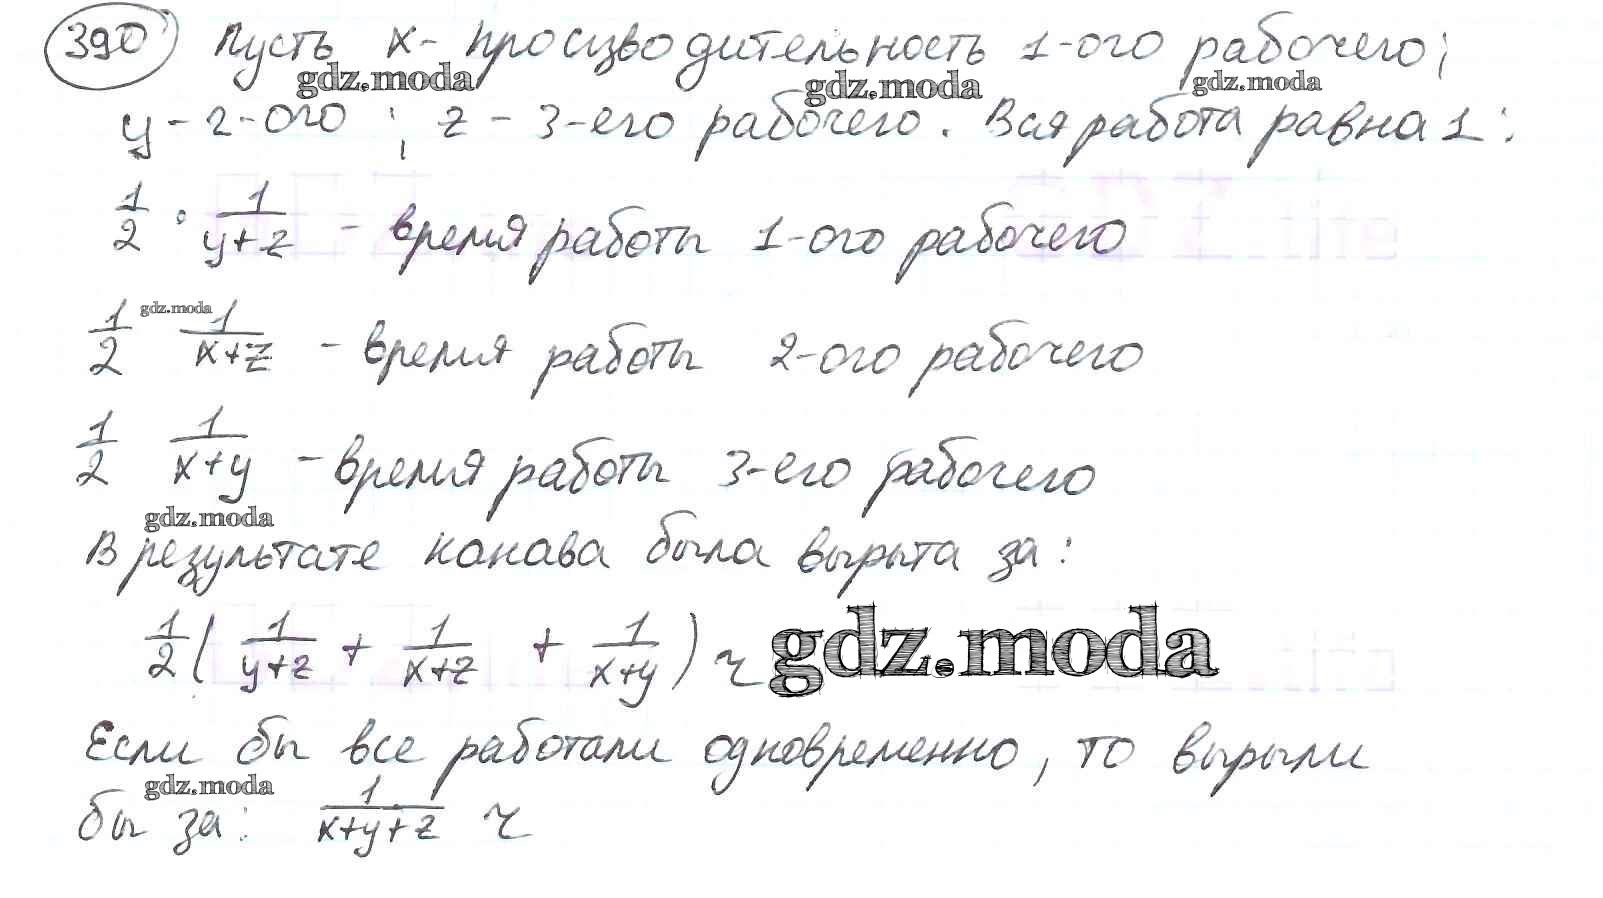 390 Пусть x - производительность 1-ого рабочего;
gdz.moda gdz.moda gdz.moda
y - 2-ого ; z - 3-его рабочего. Вся работа равна 1:
1/2 · 1/(y+z) - время работы 1-ого рабочего
gdz.moda
1/2 1/(x+z) - время работы 2-ого рабочего
1/2 1/(x+y) - время работы 3-его рабочего
gdz.moda
В результате канава была вырыта за:
1/2 ( 1/(y+z) + 1/(x+z) + 1/(x+y) ) ч gdz.moda
Если бы все работали одновременно, то вырыли
gdz.moda
бы за: 1/(x+y+z) ч